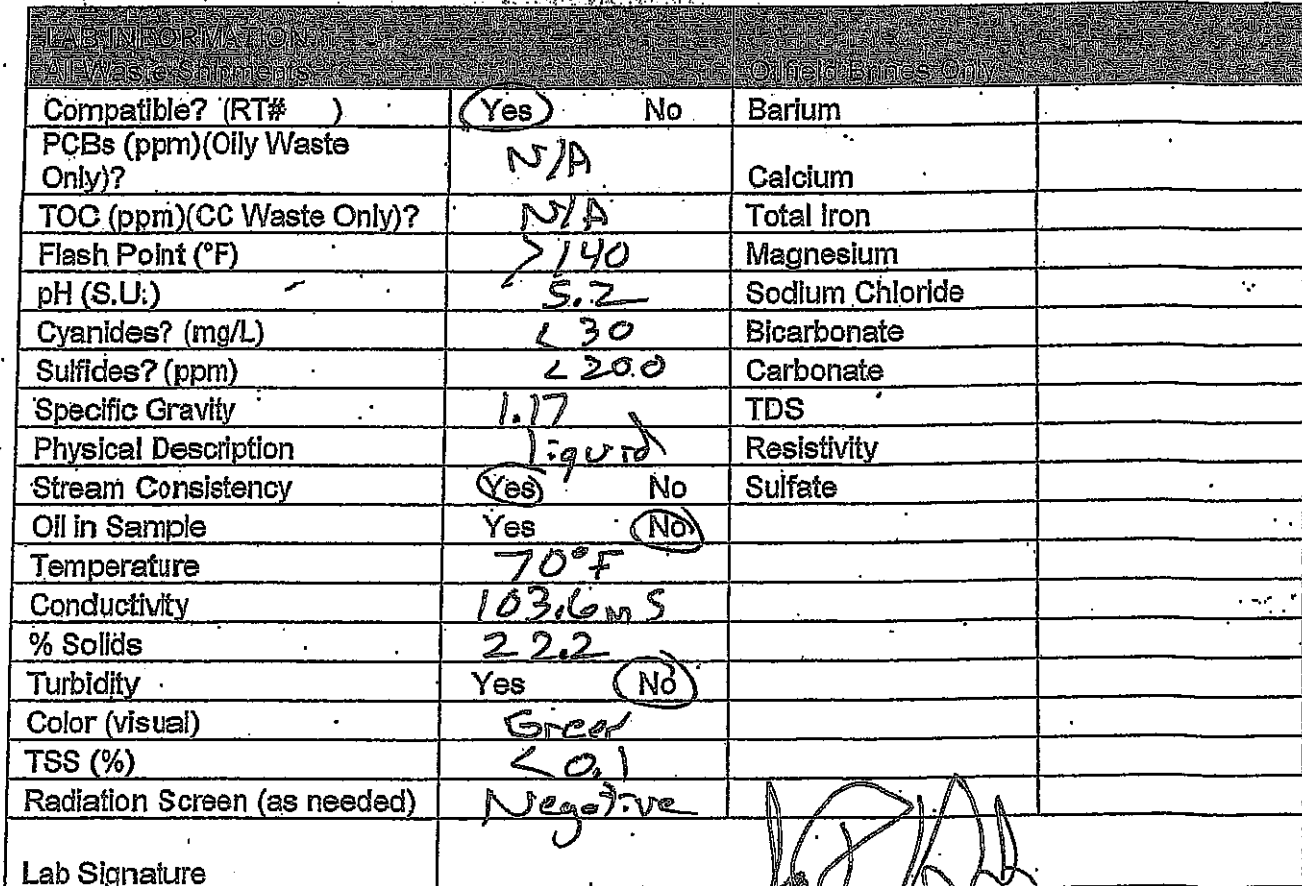 LAB INFORMATION
All Waste Shipments Oilfield Brines Only
Compatible? (RT# ) Yes No Barium
PCBs (ppm)(Oily Waste
Only)? N/A Calcium
TOC (ppm)(CC Waste Only)? N/A Total Iron
Flash Point (°F) >140 Magnesium
pH (S.U.) 5.2 Sodium Chloride
Cyanides? (mg/L) <30 Bicarbonate
Sulfides? (ppm) <200 Carbonate
Specific Gravity 1.17 TDS
Physical Description liquid Resistivity
Stream Consistency Yes No Sulfate
Oil in Sample Yes No
Temperature 70°F
Conductivity 103.6 mS
% Solids 22.2
Turbidity Yes No
Color (visual) Green
TSS (%) <0.1
Radiation Screen (as needed) Negative
Lab Signature